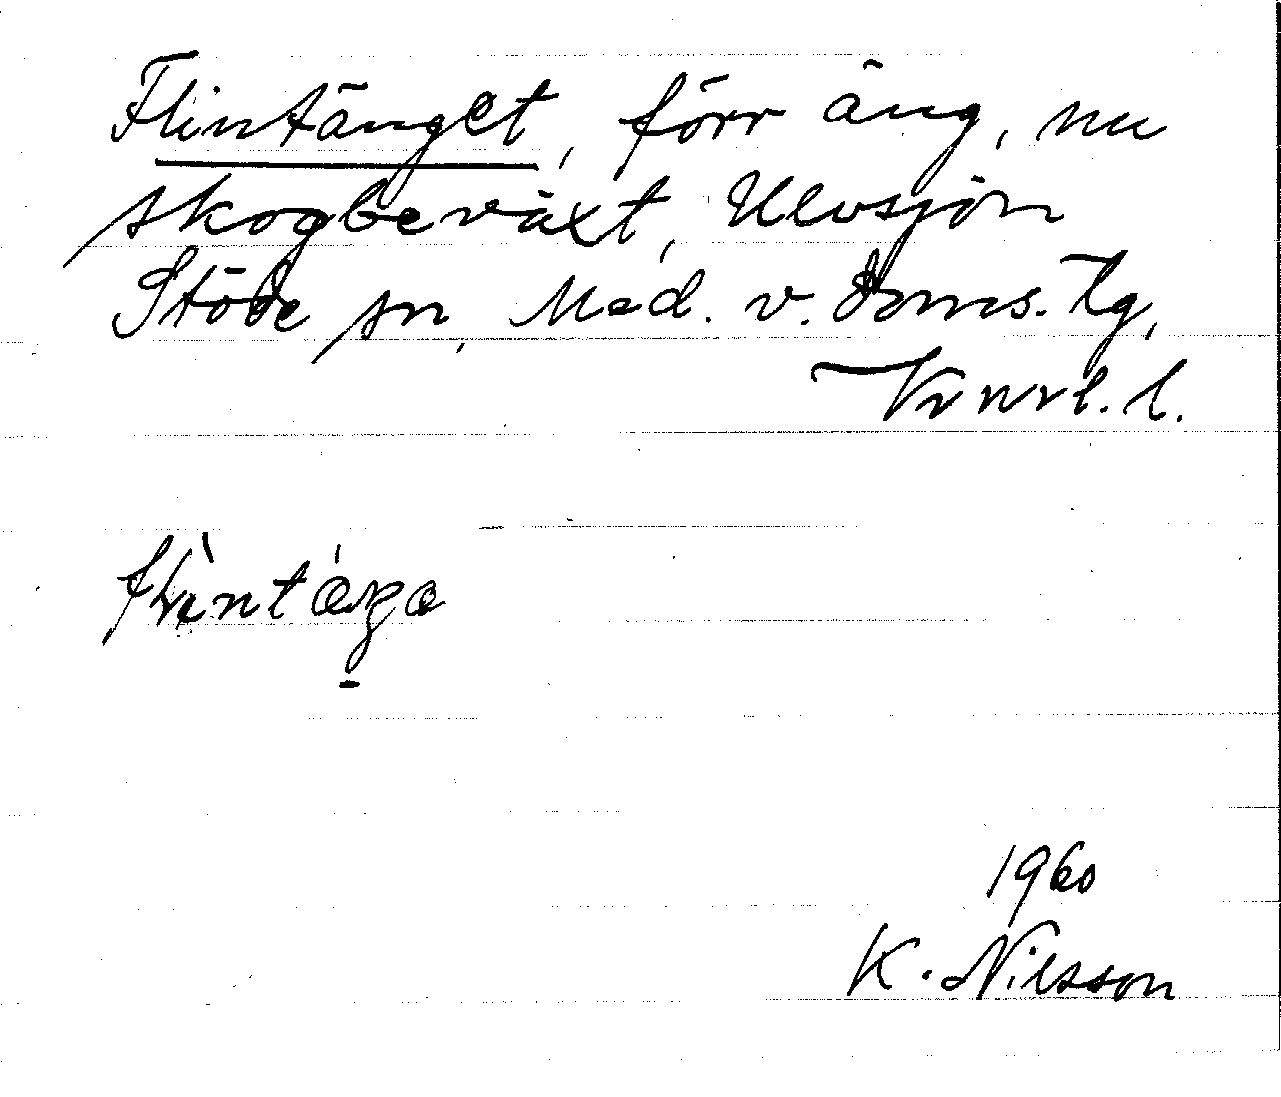 Flintänget, förr äng, nu
skogbeväxt, Ulvsjön
Stöde sn, Med. v. doms. tg,
Vrnrl. l.
1960
K. Nilsson